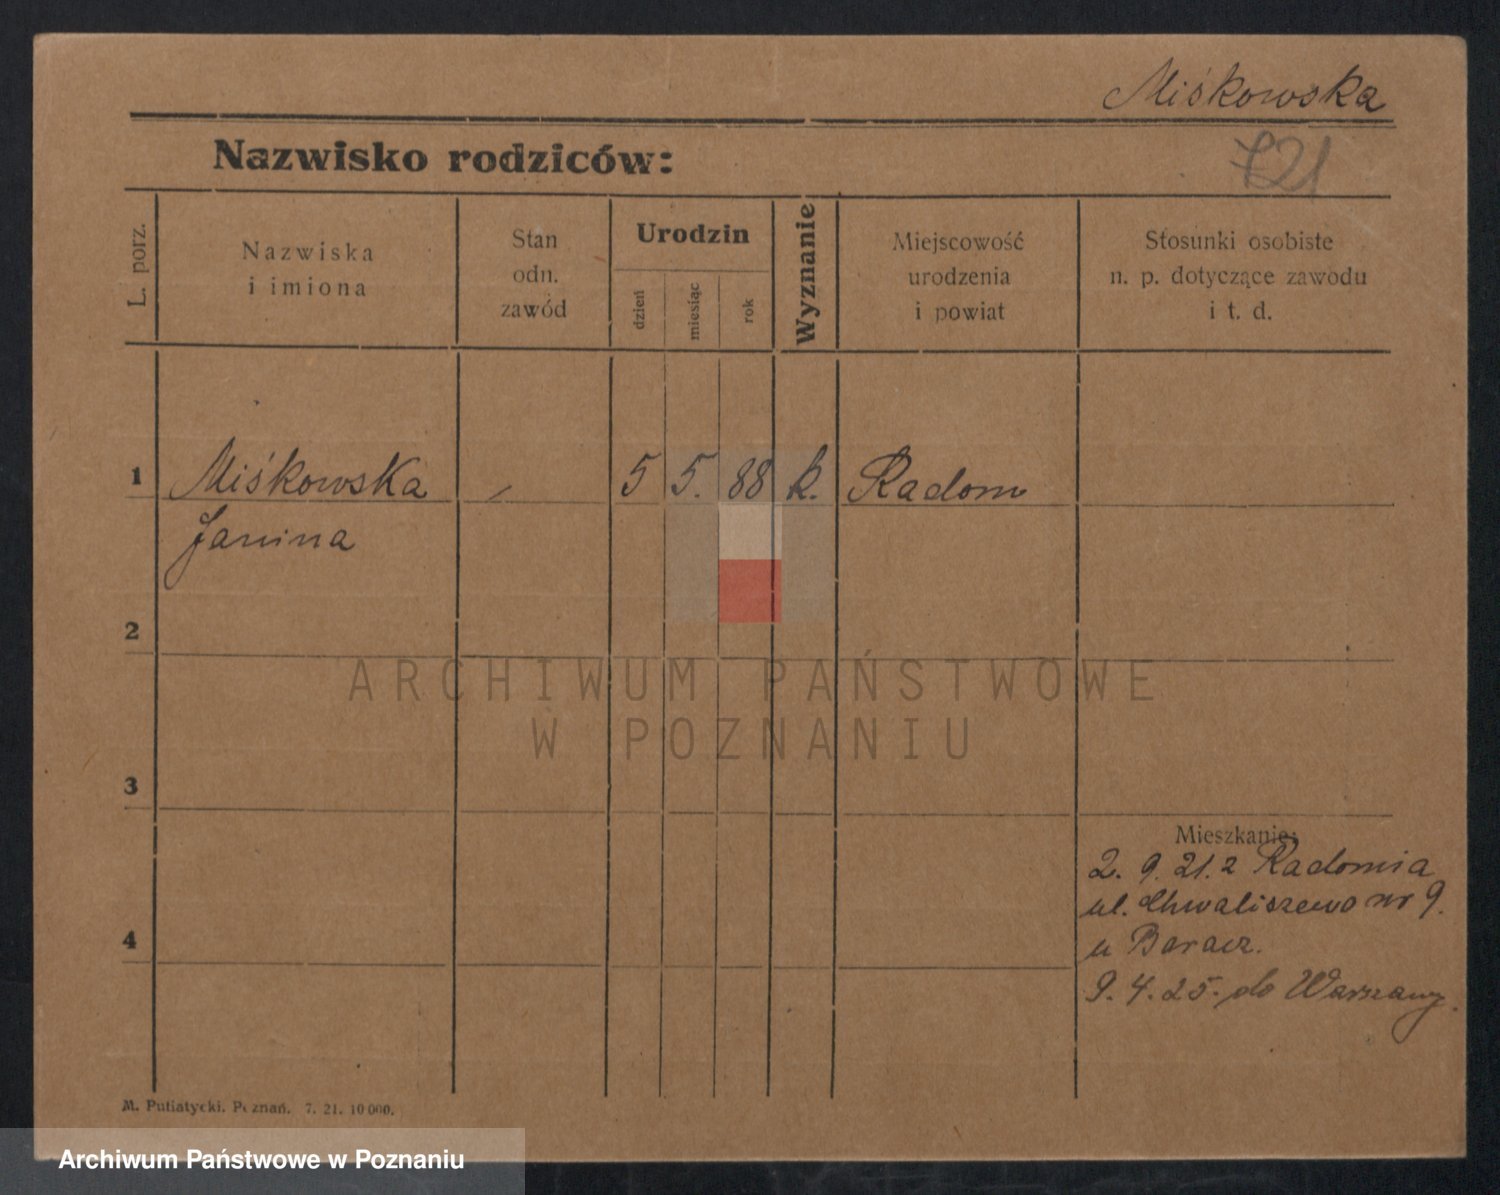 Miśkowska
721
Nazwisko rodziców:
L. porz.
Nazwiska
i imiona
Stan
odn.
zawód
Urodzin
dzień
miesiąc
rok
Wyznanie
Miejscowość
urodzenia
i powiat
Stosunki osobiste
n. p. dotyczące zawodu
i t. d.
1 Miśkowska - 5 5. 88 k. Radom
Janina
2
ARCHIWUM PAŃSTWOWE
W POZNANIU
3
Mieszkanie:
2. 9. 21. z Radomia
ul. Chwaliszewo nr 9.
u Baracz.
4
9. 4. 25. do Warszawy.
M. Putiatycki. Poznań. 7. 21. 10 000.
Archiwum Państwowe w Poznaniu